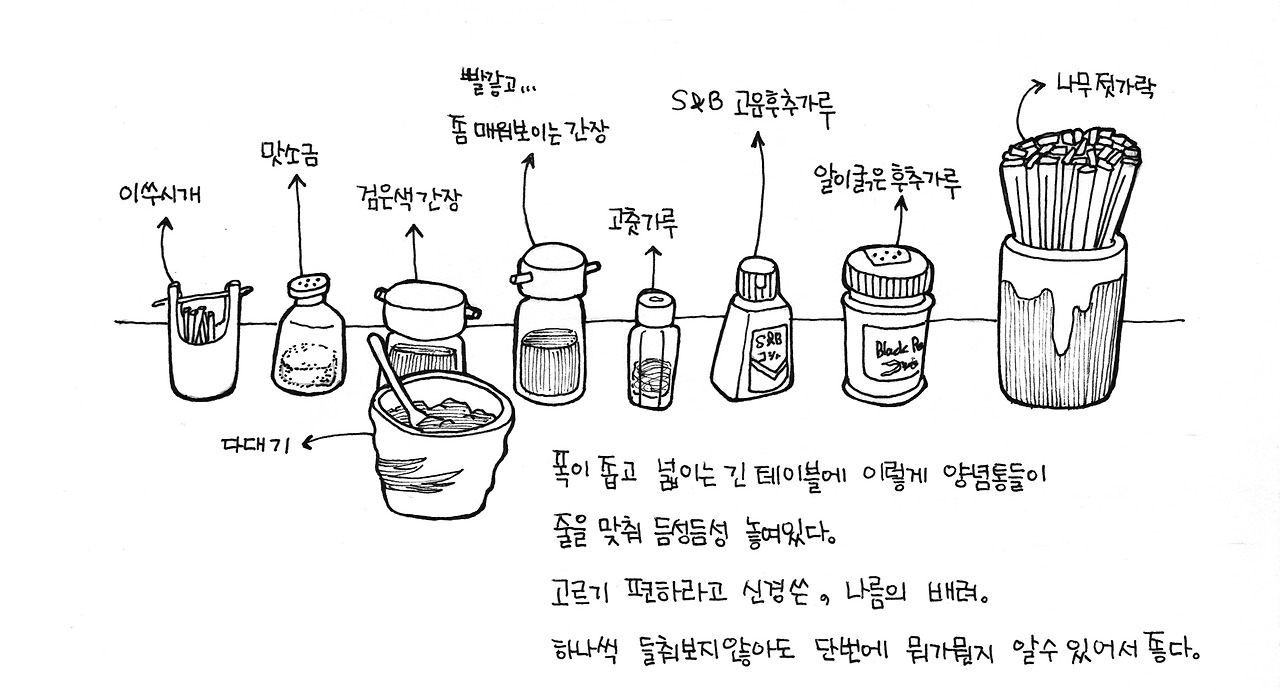 빨갛고...
좀 매워보이는 간장
S&B 고운후추가루
나무젓가락
맛소금
이쑤시개
검은색 간장
고춧가루
알이굵은 후추가루
S&B
Black
다대기
폭이 좁고 넓이는 긴 테이블에 이렇게 양념통들이
줄을 맞춰 듬성듬성 놓여있다.
고르기 편하라고 신경쓴, 나름의 배려.
하나씩 들춰보지않아도 단번에 뭐가뭔지 알수있어서 좋다.